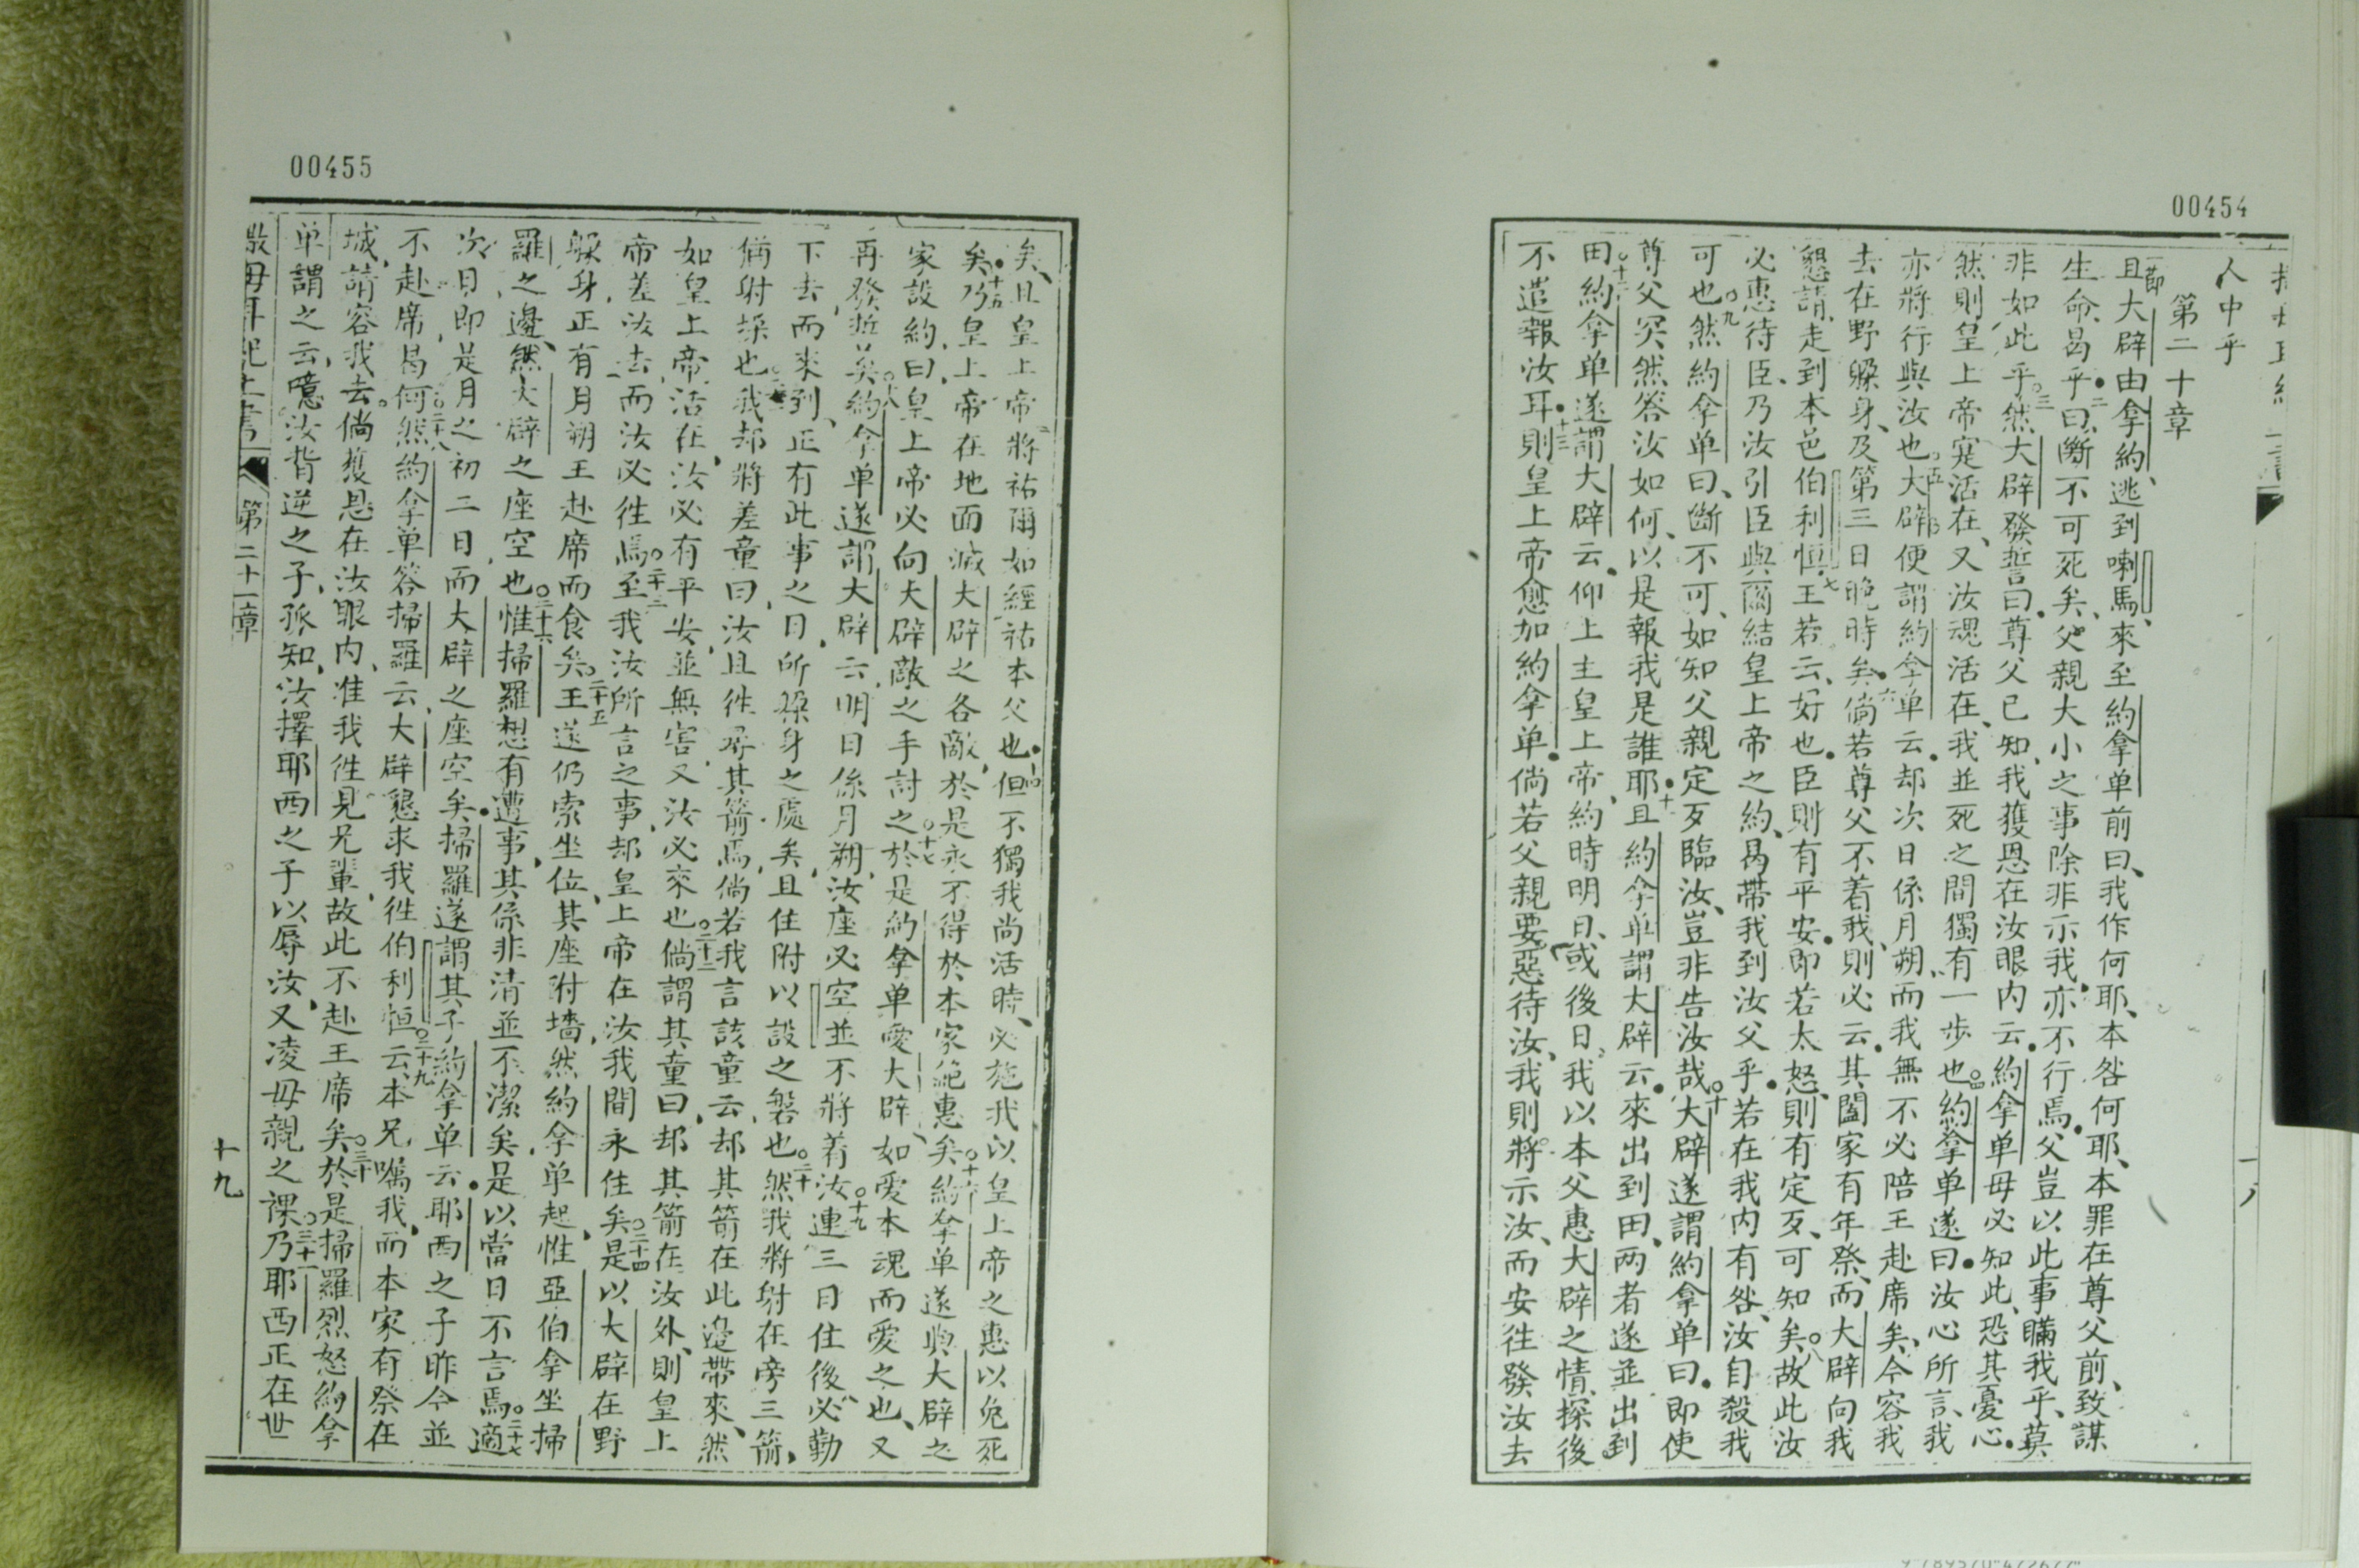 00454
人中乎
第二十章
一節且大辟由拿約、逃到喇馬、來至約拿单前曰、我作何耶、本咎何耶、本罪在尊父前、致謀
生命、曷乎○二曰、斷不可死矣、父親大小之事除非示我、亦不行焉、父豈以此事瞞我乎、莫
非如此乎○三然大辟發誓曰、尊父已知、我獲恩在汝眼內云、約拿单毋必知此、恐其憂心
然則皇上帝寔活在、又汝魂活在、我並死之間獨有一步也○四約拿单遂曰、汝心所言、我
亦將行與汝也○五大辟便謂約拿单云、却次日係月朔、而我無不必陪王赴席矣、今容我
去在野躱身、及第三日晚時矣○六倘若尊父不着我、則必云、其闔家有年祭、而大辟向我
懇請、走到本邑伯利恒○七王若云、好也、臣則有平安、即若太怒、則有定歹、可知矣○八故此汝
必惠待臣、乃汝引臣與爾結皇上帝之約、曷帶我到汝父乎、若在我內有咎、汝自殺我
可也○九然約拿单曰、斷不可、如知父親定歹臨汝、豈非告汝哉○十大辟遂謂約拿单曰、即使
尊父突然答汝如何、以是報我是誰耶○十一且約拿单謂大辟云、來出到田、两者遂並出到
田○十二約拿单遂謂大辟云、仰上主皇上帝、約時明日、或後日、我以本父惠大辟之情、探後
不遣報汝耳○十三則皇上帝愈加約拿单、倘若父親要惡待汝、我則將示汝、而安往發汝去
十八
00455
矣、且皇上帝將祐爾如經祐本父也○十四但不獨我尚活時、必施我以皇上帝之惠以免死
矣○十五乃皇上帝在地面滅大辟之各敵、於是永不得於本家絶惠矣○十六約拿单遂與大辟之
家設約曰、皇上帝必向大辟敵之手討之○十七於是約拿单愛大辟、如愛本魂而愛之也、又
再發誓矣○十八約拿单遂謂大辟云、明日係月朔、汝座必空、並不將着汝○十九連三日住後、必勤
下去、而來到、正有此事之日、所躱身之處矣、且住附以設之磐也○二十然我將射在旁三箭、
猶射垜也○二十一我却將差童曰、汝且徃尋其箭焉、倘若我言該童云、却其箭在此邊帶來、然
如皇上帝活在、汝必有平安、並無害、又汝必來也○二十二倘謂其童曰、却其箭在汝外、則皇上
帝差汝去、而汝必徃焉○二十三至我汝所言之事、却皇上帝在汝我間永住矣○二十四是以大辟在野
躱身、正有月朔王赴席而食矣○二十五王遂仍索坐位、其座附墻、然約拿单起、惟亞伯拿坐掃
羅之邊、然大辟之座空也○二十六惟掃羅想有遭事、其係非清並不潔矣、是以當日不言焉○二十七適
次日即是月之初二日、而大辟之座空矣、掃羅遂謂其子約拿单云、耶西之子昨今並
不赴席、曷何○二十八然約拿单答掃羅云、大辟懇求我徃伯利恒○二十九云、本兄囑我、而本家有祭在
城、請容我去、倘獲恩在汝眼內、准我徃見兄輩、故此不赴王席矣○三十於是掃羅烈怒約拿
单謂之云、噫、汝背逆之子、孤知、汝擇耶西之子以辱汝、又凌母親之祼○三十一乃耶西正在世
撒母耳紀上書
第二十一章
十九